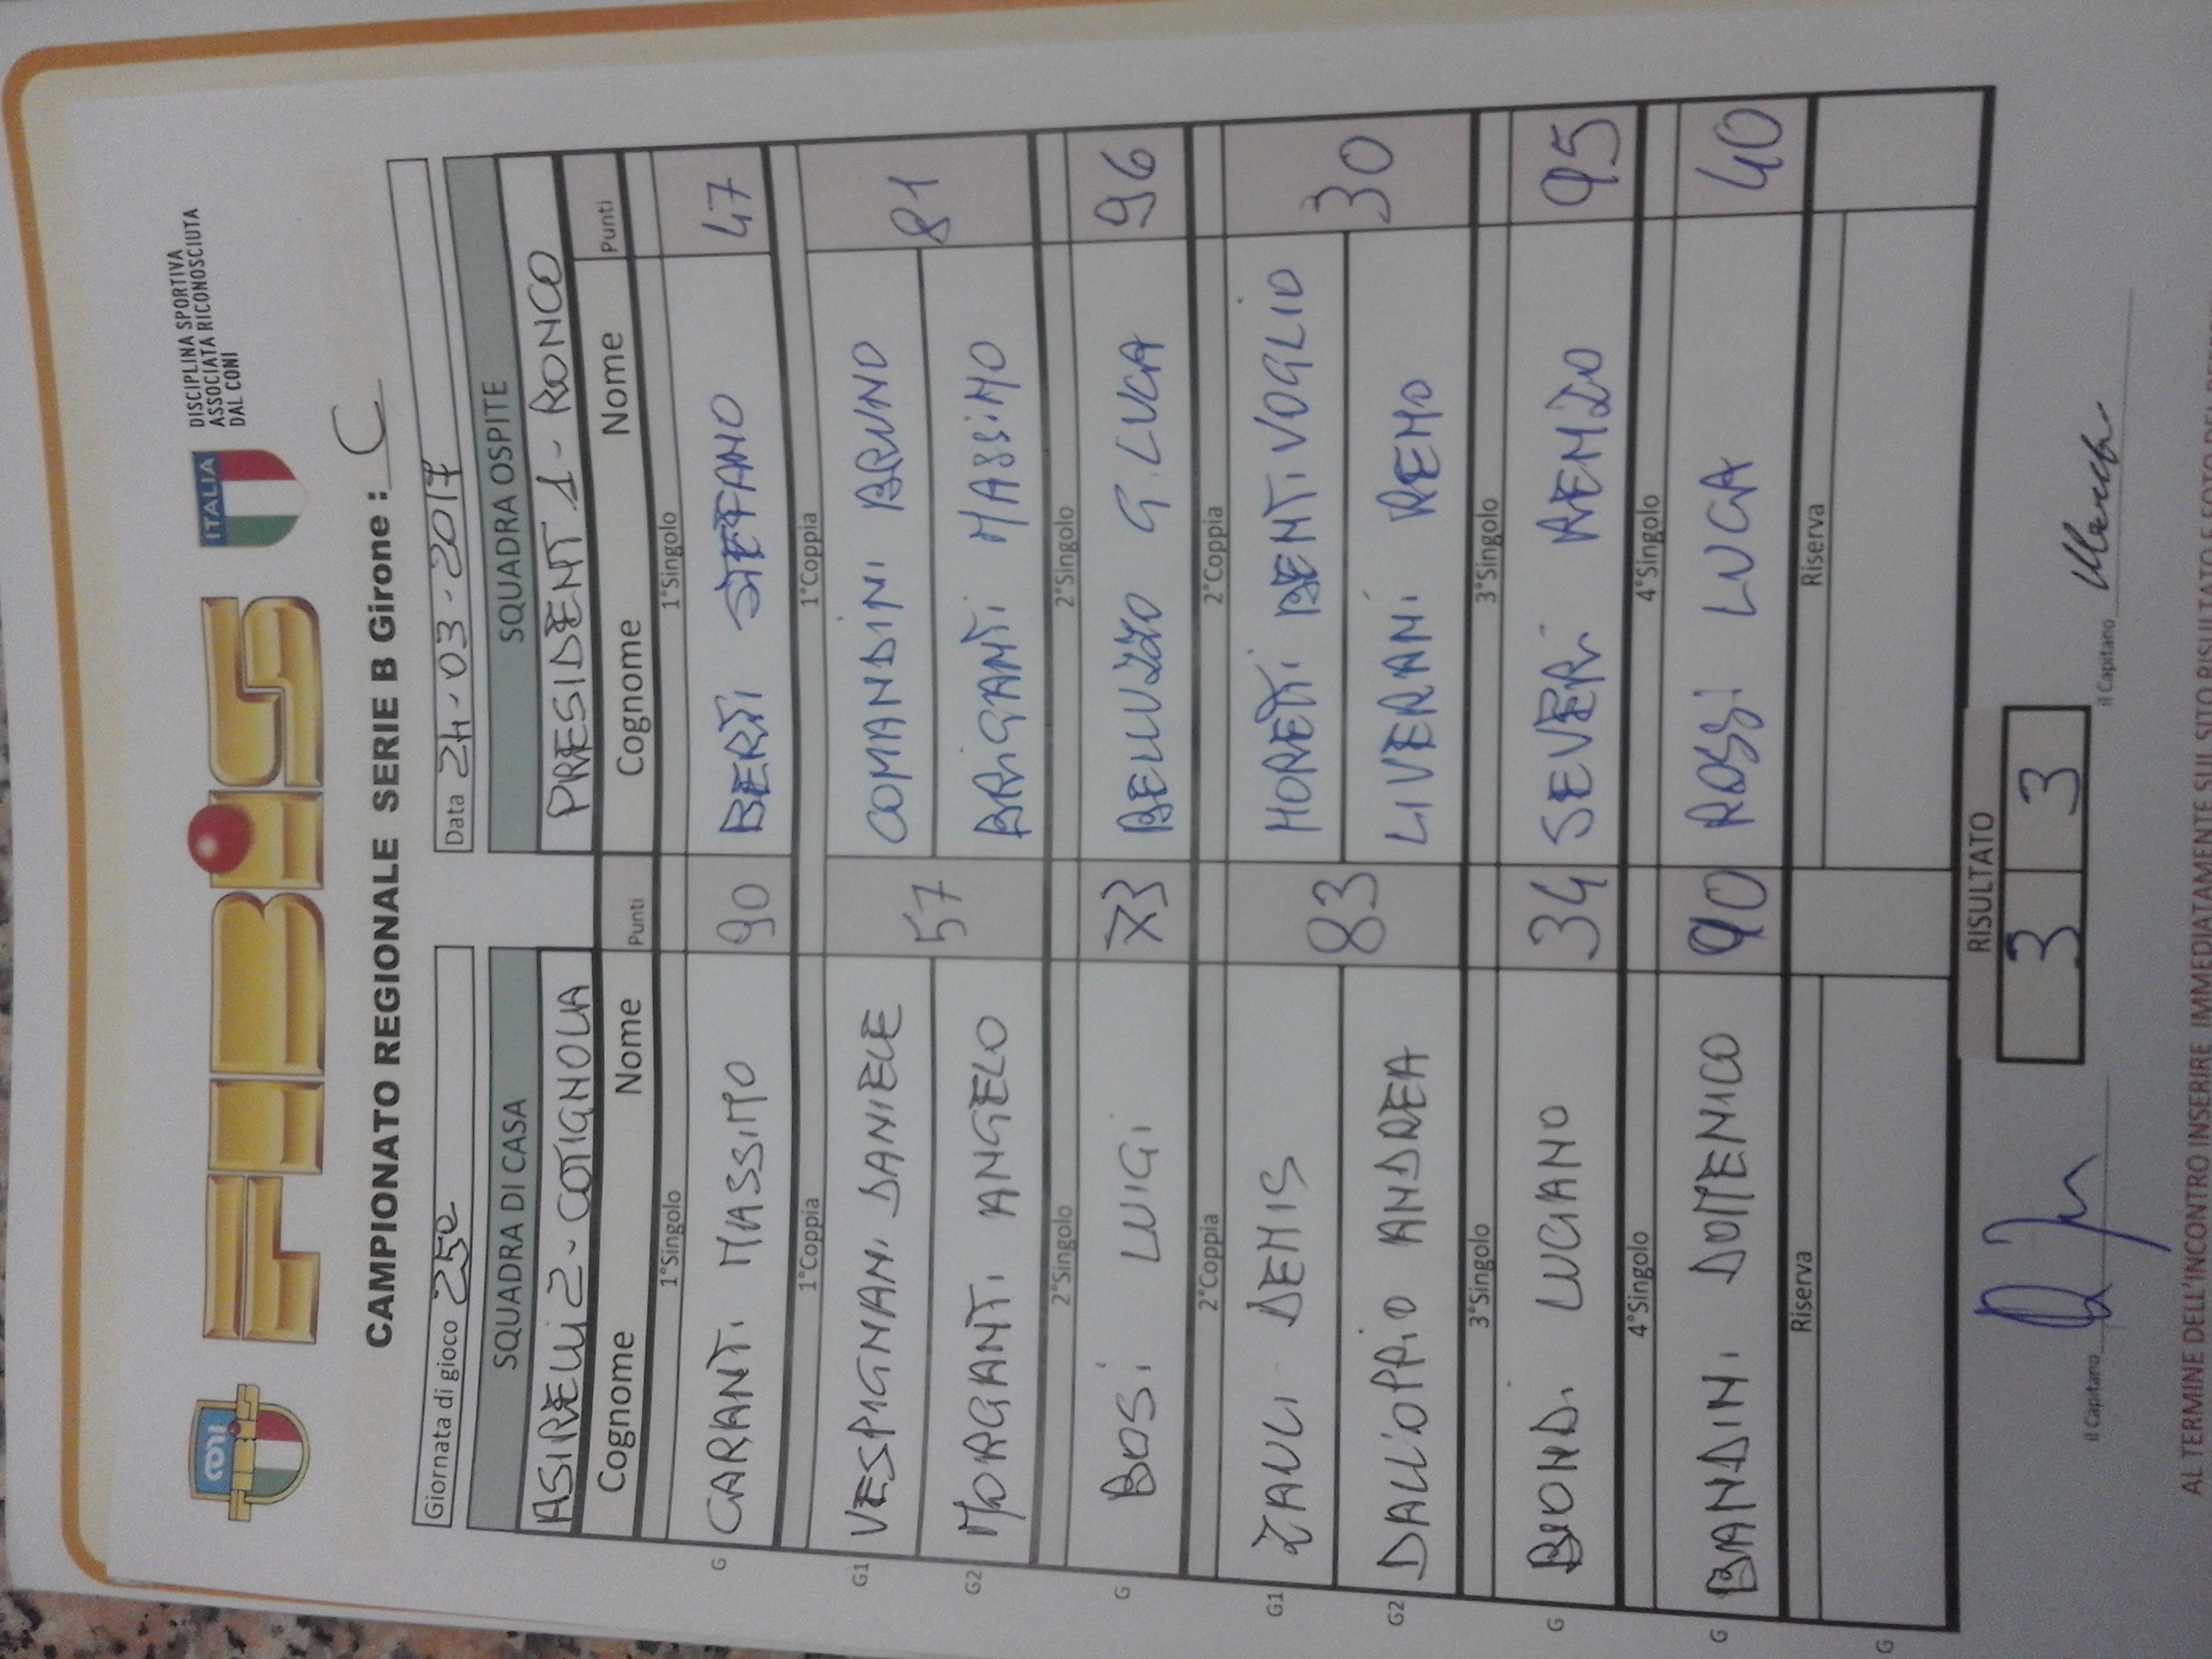 CONI
FIBiS
ITALIA
DISCIPLINA SPORTIVA
ASSOCIATA RICONOSCIUTA
DAL CONI
CAMPIONATO REGIONALE SERIE B Girone : C
Giornata di gioco 25° Data 24-03-2017
SQUADRA DI CASA SQUADRA OSPITE
ASIRELLI 2 - COTIGNOLA PRESIDENT 1 - RONCO
Cognome Nome Punti Cognome Nome Punti
1°Singolo 1°Singolo
G CARANTI MASSIMO 90 BERTI STEFANO 47
1°Coppia 1°Coppia
G1 VESPIGNANI DANIELE 57 COMANDINI BRUNO 81
G2 MORGANTI ANGELO BRIGANTI MASSIMO
2°Singolo 2°Singolo
G BOSI LUIGI 73 BELLUZZO G.LUCA 96
2°Coppia 2°Coppia
G1 ZAULI DEMIS 83 MORETTI BENTIVOGLIO 30
G2 DALL'OPPIO ANDREA LIVERANI REMO
3°Singolo 3°Singolo
G BIONDI LUCIANO 34 SEVERI RENZO 95
4°Singolo 4°Singolo
G BANDINI DOMENICO 90 ROSSI LUCA 40
Riserva Riserva
G
RISULTATO
3 3
il Capitano il Capitano
AL TERMINE DELL'INCONTRO INSERIRE IMMEDIATAMENTE SUL SITO RISULTATO E FOTO DEL